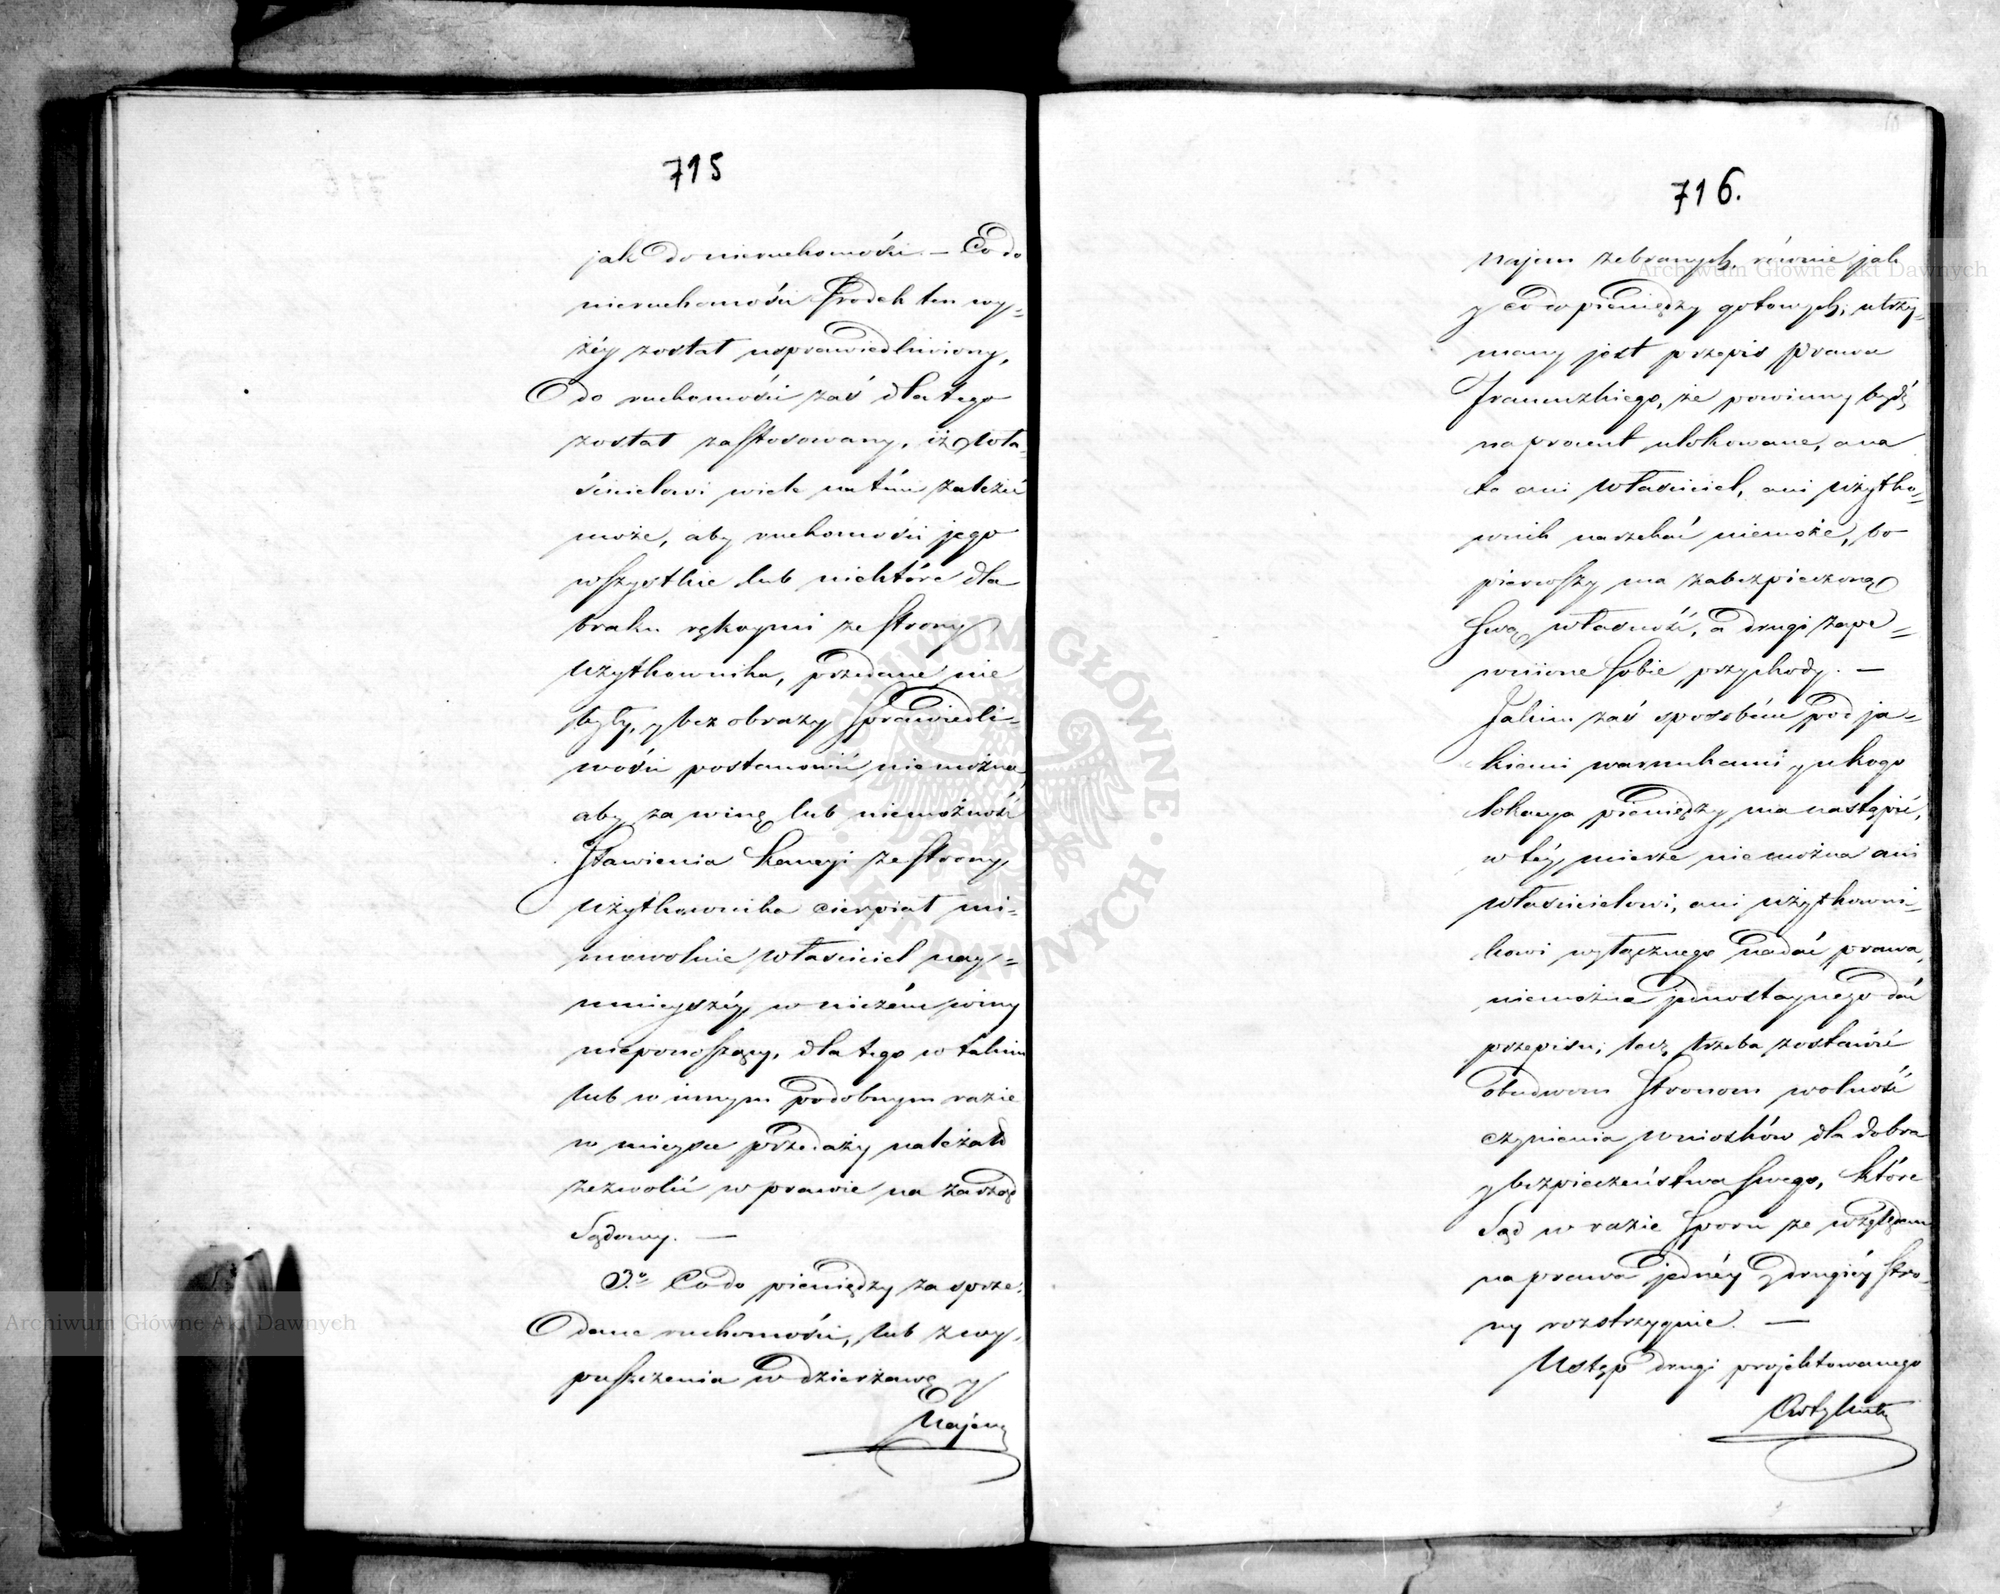 715
jak do nieruchomości — Co do
nieruchomości środek ten wy=
żéy został usprawiedliwiony,
do ruchomości zaś dla tego
został zastosowany, iż wła=
ścicielowi wiele na tém zależeć
może, aby ruchomości jego
wszystkie lub niektóre dla
braku rękoymi ze strony
użytkownika, przedane nie
były, y bez obrazy sprawiedli=
wości postanowić niemożna,
aby za winę lub niemożność
stawienia kaucyi ze strony
użytkownika cierpiał mi=
mowolnie właściciel nay=
mnieyszéy w niczém winy
nieponoszący, dla tego w takim
lub w innym podobnym razie
w mieysce przedaży należało
zezwolić w prawie na zarząd
Sądowy. —
3.o Co do pieniędzy za sprze=
dane ruchomości, lub z wy=
puszczenia w dzierżawę y
Najem
716.
najem zebranych, równie jak
y co do pieniędzy gotowych, utrzy=
many jest przepis prawa
Francuzkiego, że powinny bydź
na procent ulokowane, a na
to ani właściciel, ani użytko=
wnik narzekać niemoże, bo
pierwszy ma zabezpieczoną
swą własność, a drugi zape=
wnione sobie przychody. —
Jakim zaś sposobém pod ja=
kiemi warunkami y u kogo
lokacya pieniędzy ma nastąpić,
w téy mierze nie można ani
właścicielowi, ani użytkowni=
kowi wyłącznego nadać prawa,
niemożna jednostaynego dać
przepisu; lecz trzeba zostawić
obudwom stronom wolność
czynienia wniosków dla dobra
y bezpieczeństwa swego, które
Sąd w razie sporu ze względem
na prawa jednéy y drugiéy stro=
ny rozstrzygnie. —
Ustęp drugi projektowanego
Artykułu
Archiwum Główne Akt Dawnych
Archiwum Główne Akt Dawnych
ARCHIWUM GŁÓWNE · AKT DAWNYCH ·